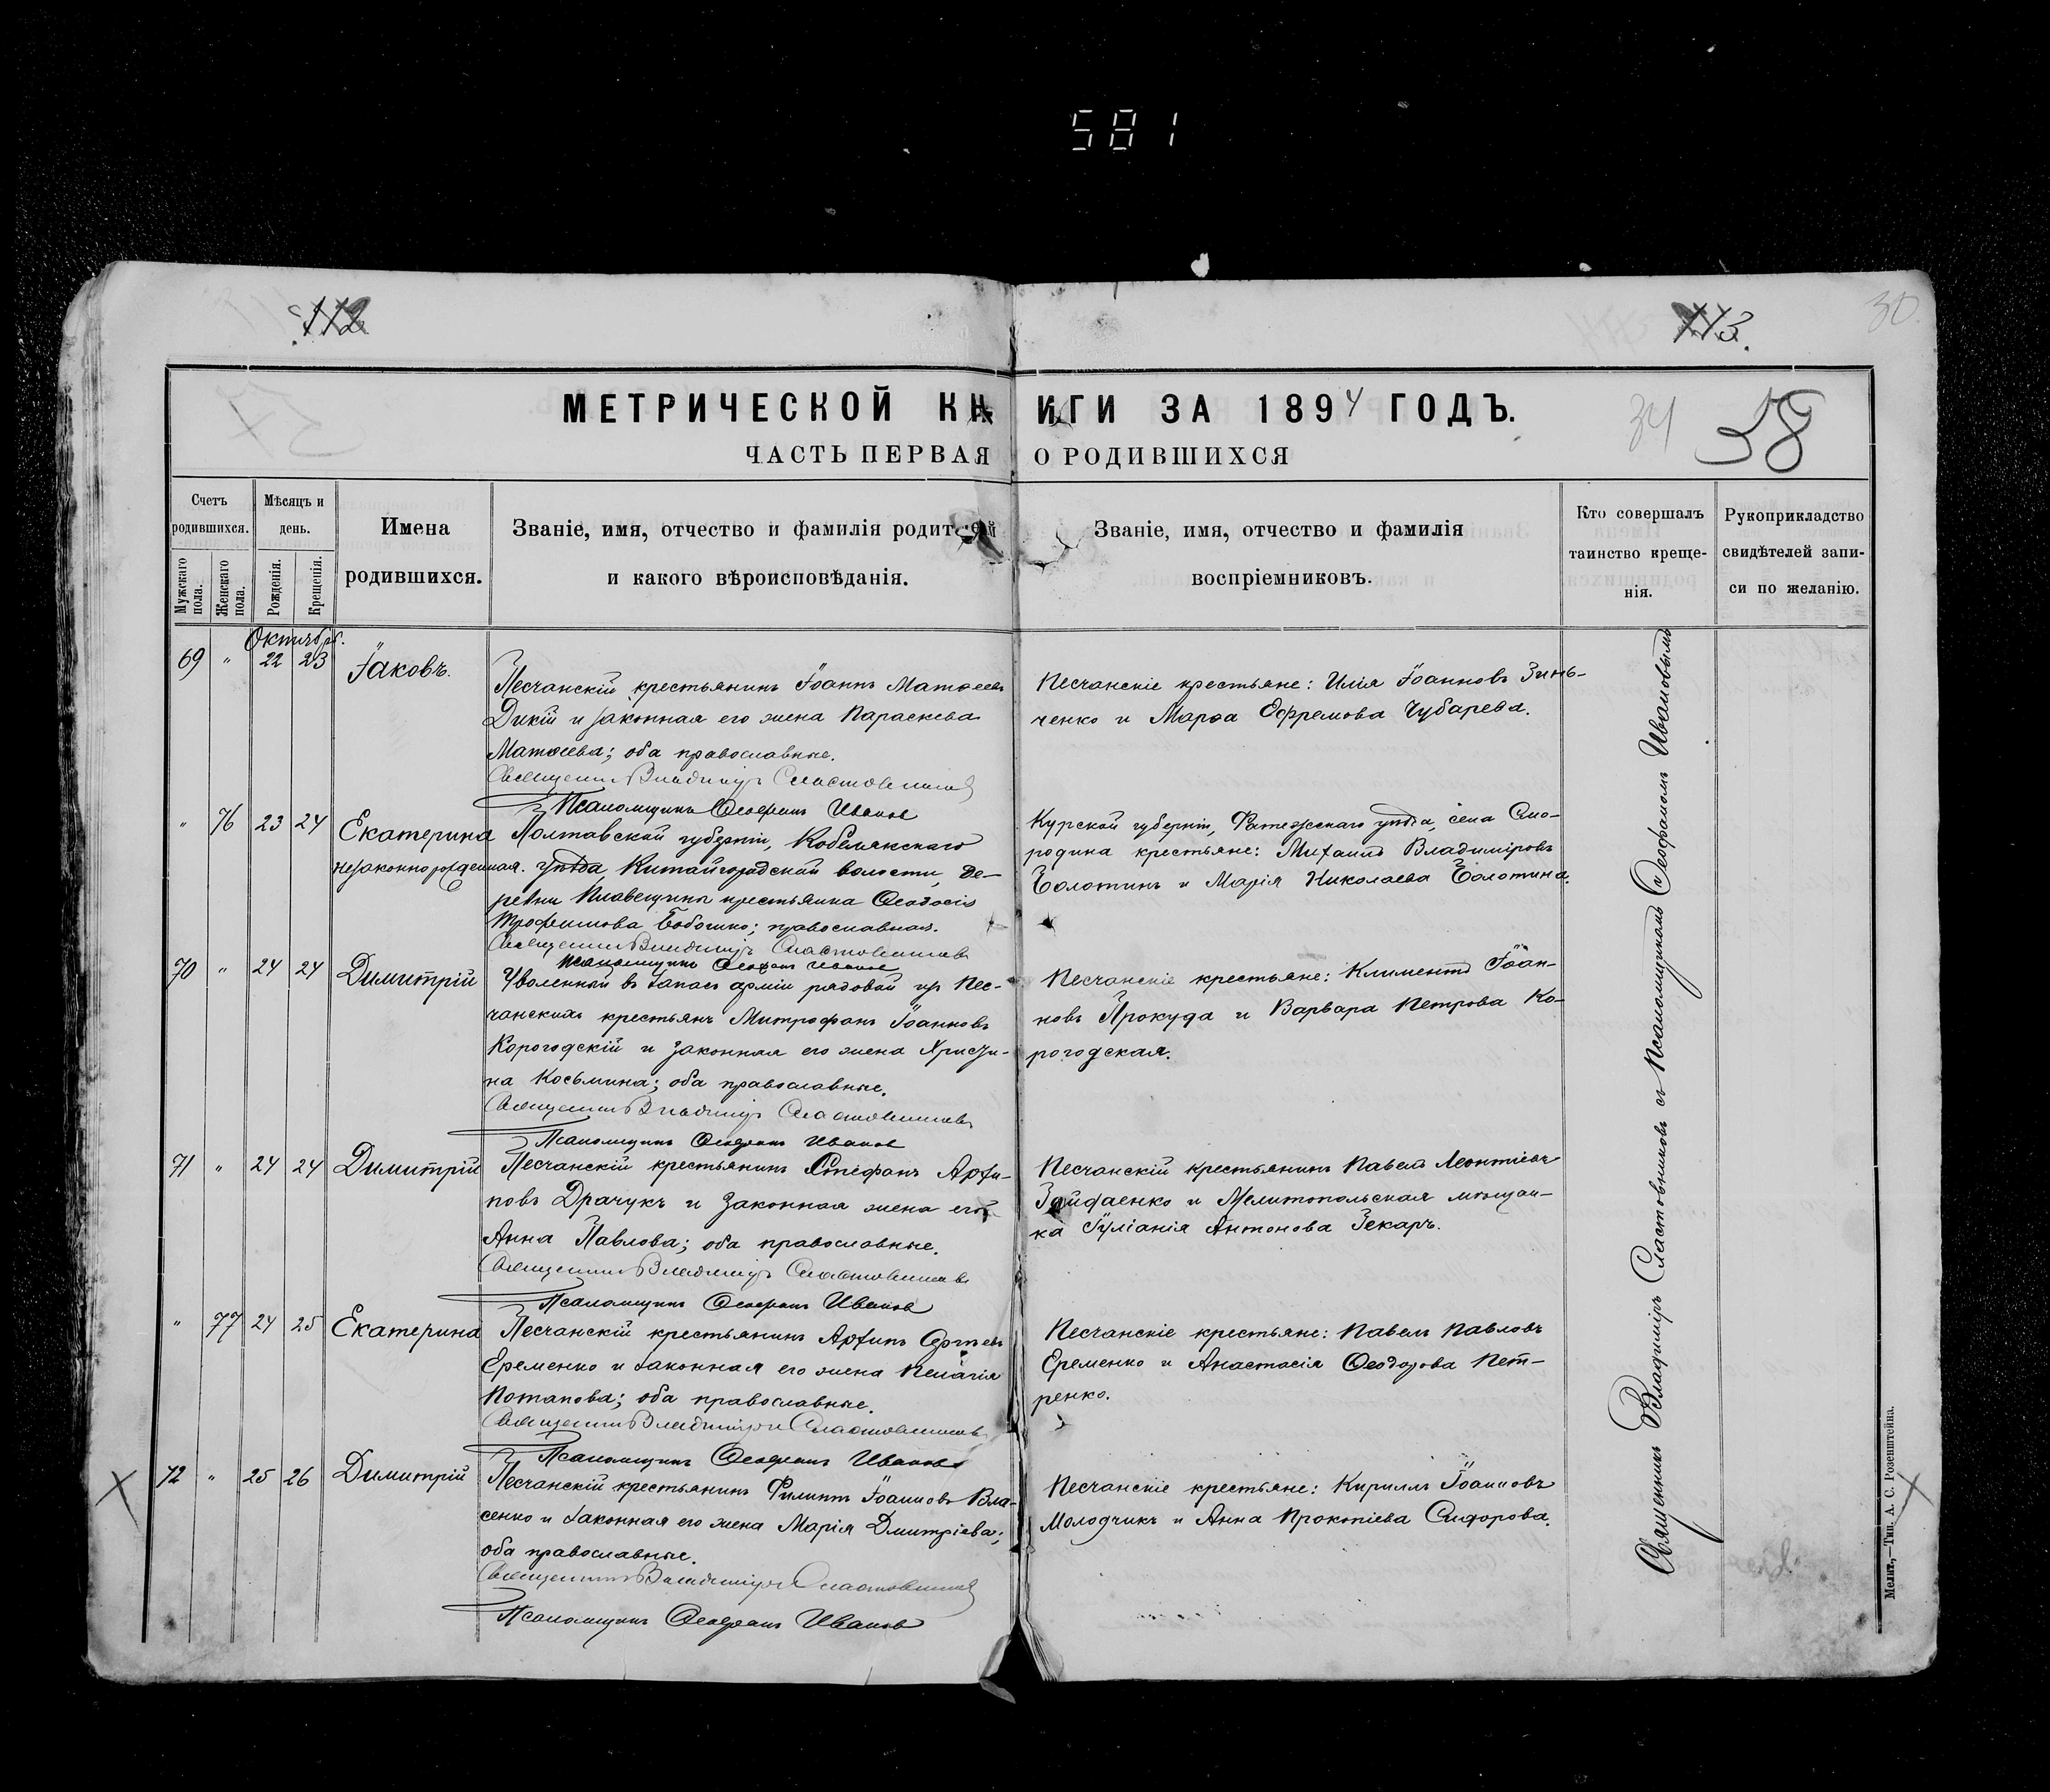 581
112
113.
30.
МЕТРИЧЕСКОЙ КНИГИ ЗА 1894 ГОДЪ.
34
58
ЧАСТЬ ПЕРВАЯ О РОДИВШИХСЯ
Счетъ родившихся.
Мужскаго пола.
Женскаго пола.
Мѣсяцъ и день.
Рожденія.
Крещенія.
Имена родившихся.
Званіе, имя, отчество и фамилія родителей
и какого вѣроисповѣданія.
Званіе, имя, отчество и фамилія
воспріемниковъ.
Кто совершалъ таинство крещенія.
Рукоприкладство свидѣтелей записи по желанію.
Октябрь.
69 " 22 23 Іаковъ.
Песчанскій крестьянинъ Іоаннъ Матѳеевъ
Дикій и законная его жена Параскева
Матѳеева; оба православные.
Священникъ Владиміръ Сластовниковъ
Псаломщикъ Ѳеофанъ Ивановъ
Песчанскіе крестьяне: Илія Іоанновъ Зинь-
ченко и Марѳа Ефремова Чубарева.
" 76 23 24 Екатерина
незаконнорожденная.
Полтавской губерніи, Кобелякскаго
уѣзда, Китайгородской волости, де-
ревни
крестьянка Ѳеодосія
Трофимова
православная.
Священникъ Владиміръ Сластовниковъ
Псаломщикъ Ѳеофанъ Ивановъ
Курской губерніи, Фатежскаго уѣзда, села Смо-
родина крестьяне: Михаилъ Владиміровъ
Болотинъ и Марія Николаева Болотина.
70 " 24 24 Димитрій
Уволенный въ запасъ арміи рядовой изъ Пес-
чанскихъ крестьянъ Митрофанъ Іоанновъ
Корогодскій и законная его жена Христи-
на Косьмина; оба православные.
Священникъ Владиміръ Сластовниковъ
Псаломщикъ Ѳеофанъ Ивановъ
Песчанскіе крестьяне: Климентъ Іоан-
новъ Прокуда и Варвара Петрова Ко-
рогодская.
71 " 24 24 Димитрій
Песчанскій крестьянинъ Стефанъ Архи-
повъ Драчукъ и законная жена его
Анна Павлова; оба православные.
Священникъ Владиміръ Сластовниковъ
Псаломщикъ Ѳеофанъ Ивановъ
Песчанскій крестьянинъ Павелъ Леонтіевъ
и Мелитопольская мѣщан-
ка Іуліанія Антонова Зекаръ.
" 77 24 25 Екатерина
Песчанскій крестьянинъ Архипъ Сергѣевъ
Еременко и законная его жена Пелагія
Потапова; оба православные.
Священникъ Владиміръ Сластовниковъ
Псаломщикъ Ѳеофанъ Ивановъ
Песчанскіе крестьяне: Павелъ Павловъ
Еременко и Анастасія Ѳеодорова Пет-
ренко.
72 " 25 26 Димитрій
Песчанскій крестьянинъ Филиппъ Іоанновъ Вла-
сенко и законная его жена Марія Дмитріева;
оба православные.
Священникъ Владиміръ Сластовниковъ
Псаломщикъ Ѳеофанъ Ивановъ
Песчанскіе крестьяне: Кириллъ Іоанновъ
Молодчикъ и Анна Прокопіева Сидорова.
Священникъ Владиміръ Сластовниковъ съ Псаломщикомъ Ѳеофаномъ Ивановымъ
Мелит,—Тип. А. С. Розенштейна.